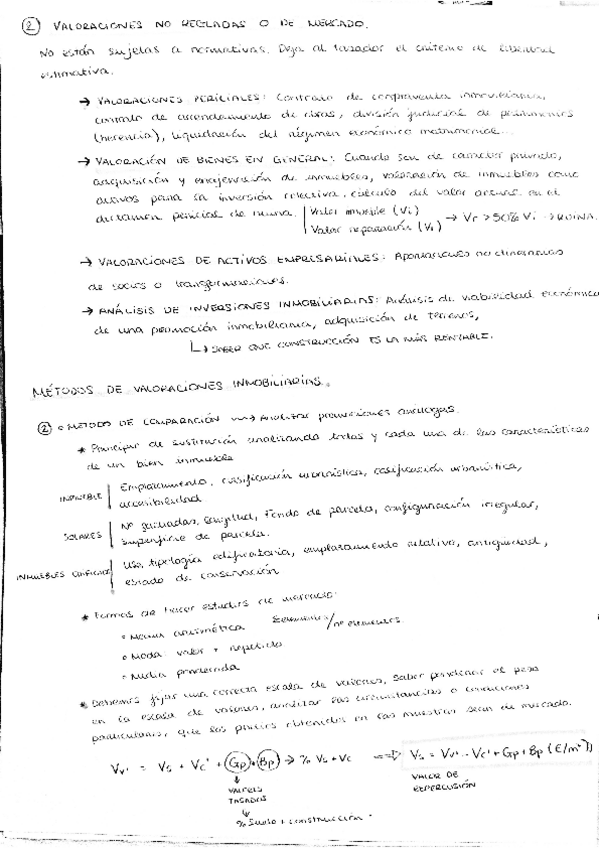 ② VALORACIONES NO REGLADAS O DE MERCADO.
No están sujetas a normativas. Deja al tasador el criterio de libertad
estimativa.
→ VALORACIONES PERICIALES: Contrato de compraventa inmobiliaria,
contrato de arrendamiento de obras, división judicial de patrimonios
(herencia), liquidación del régimen económico matrimonial...
→ VALORACIÓN DE BIENES EN GENERAL: Cuando son de carácter privado,
adquisición y enajenación de inmuebles, valoración de inmuebles como
activos para la inversión colectiva, cálculo del valor actual en el
dictamen pericial de ruina. Valor inmueble (Vi)
Valor reparación (Vr) → Vr > 50% Vi → RUINA.
→ VALORACIONES DE ACTIVOS EMPRESARIALES: Aportaciones no dinerarias
de socios o transformaciones.
→ ANÁLISIS DE INVERSIONES INMOBILIARIAS: Análisis de viabilidad económica
de una promoción inmobiliaria, adquisición de terrenos,
↳ SABER QUE CONSTRUCCIÓN ES LA MÁS RENTABLE.
MÉTODOS DE VALORACIONES INMOBILIARIAS.
② o MÉTODO DE COMPARACIÓN → Analizar promociones análogas.
* Principio de sustitución analizando todas y cada una de las características
de un bien inmueble
INMUEBLE Emplazamiento, clasificación urbanística, calificación urbanística,
accesibilidad
SOLARES Nº fachadas, longitud, fondo de parcela, configuración irregular,
superficie de parcela.
INMUEBLES EDIFICADOS Uso, tipología edificatoria, emplazamiento relativo, antigüedad,
estado de conservación
* Formas de hacer estudios de mercado:
o Media aritmética Σelementos/nº elementos.
o Moda: valor + repetido
o Media ponderada
* Debemos fijar una correcta escala de valores, saber ponderar el peso
en la escala de valores, analizar las circunstancias o condiciones
particulares, que los precios obtenidos en las muestras sean de mercado.
Vv' = Vs + Vc' + Gp + Bp → % Vs + Vc ⇒ Vs = Vv' - Vc' + Gp + Bp (€/m²)
VALORES
TASADOS
VALOR DE
REPERCUSIÓN
% Suelo + construcción